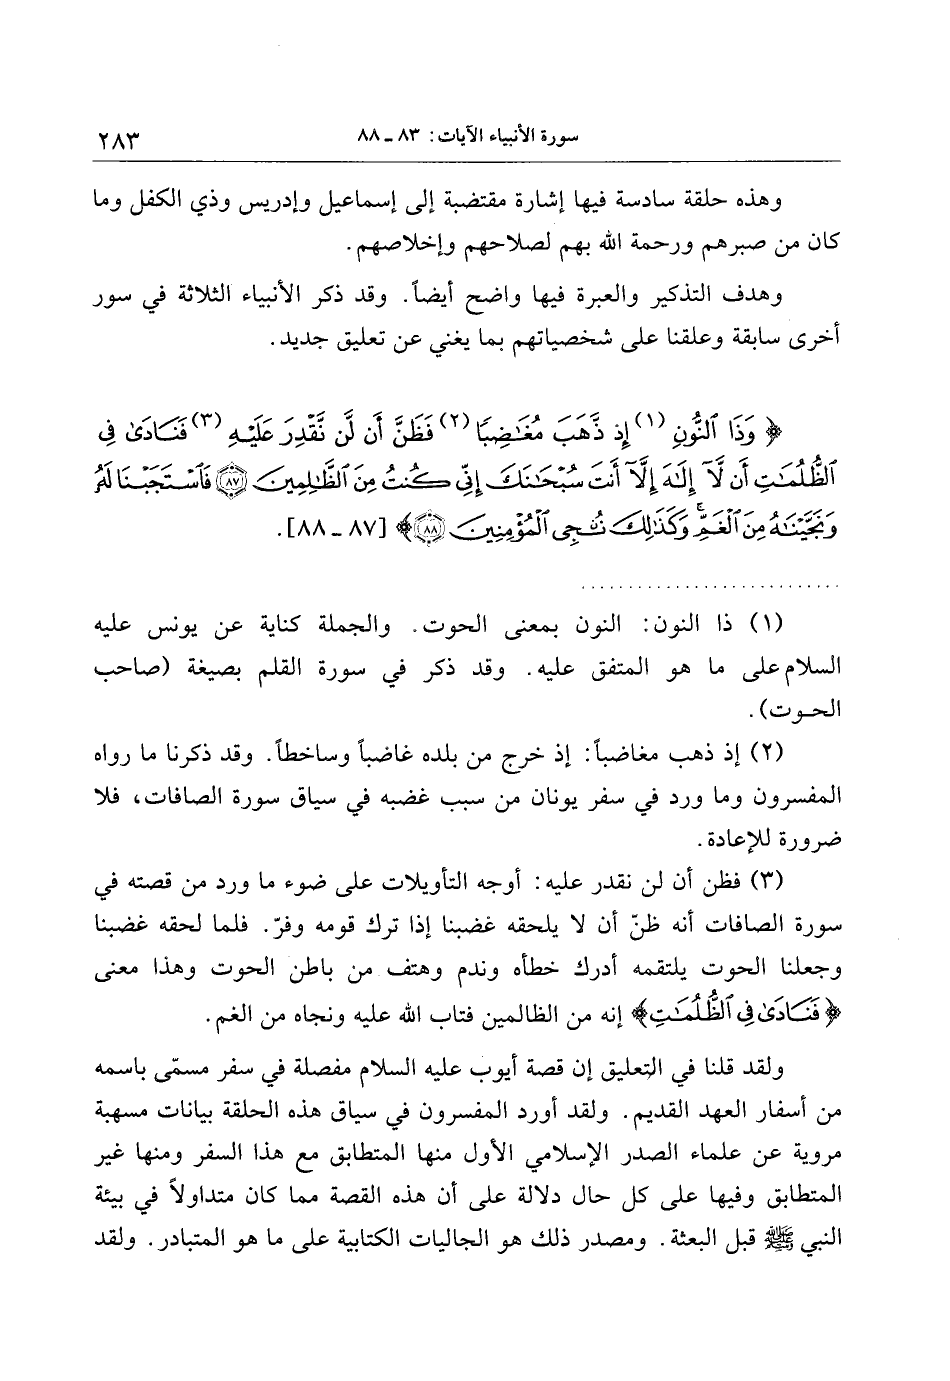 سورة الأنبياء الآيات: ٨٣ ـ ٨٨ ٢٨٣
وهذه حلقة سادسة فيها إشارة مقتضبة إلى إسماعيل وإدريس وذي الكفل وما
كان من صبرهم ورحمة الله بهم لصلاحهم وإخلاصهم.
وهدف التذكير والعبرة فيها واضح أيضاً. وقد ذكر الأنبياء الثلاثة في سور
أخرى سابقة وعلقنا على شخصياتهم بما يغني عن تعليق جديد.
﴿ وَذَا ٱلنُّونِ (١) إِذ ذَّهَبَ مُغَٰضِبًا (٢) فَظَنَّ أَن لَّن نَّقْدِرَ عَلَيْهِ (٣) فَنَادَىٰ فِي
ٱلظُّلُمَٰتِ أَن لَّآ إِلَٰهَ إِلَّآ أَنتَ سُبْحَٰنَكَ إِنِّي كُنتُ مِنَ ٱلظَّٰلِمِينَ ٨٧ فَٱسْتَجَبْنَا لَهُۥ
وَنَجَّيْنَٰهُ مِنَ ٱلْغَمِّ ۚ وَكَذَٰلِكَ نُۨجِي ٱلْمُؤْمِنِينَ ٨٨ ﴾ [٨٧ ـ ٨٨].
..............................
(١) ذا النون: النون بمعنى الحوت. والجملة كناية عن يونس عليه
السلام على ما هو المتفق عليه. وقد ذكر في سورة القلم بصيغة (صاحب
الحوت).
(٢) إذ ذهب مغاضباً: إذ خرج من بلده غاضباً وساخطاً. وقد ذكرنا ما رواه
المفسرون وما ورد في سفر يونان من سبب غضبه في سياق سورة الصافات، فلا
ضرورة للإعادة.
(٣) فظن أن لن نقدر عليه: أوجه التأويلات على ضوء ما ورد من قصته في
سورة الصافات أنه ظنّ أن لا يلحقه غضبنا إذا ترك قومه وفرّ. فلما لحقه غضبنا
وجعلنا الحوت يلتقمه أدرك خطأه وندم وهتف من باطن الحوت وهذا معنى
﴿ فَنَادَىٰ فِي ٱلظُّلُمَٰتِ ﴾ إنه من الظالمين فتاب الله عليه ونجاه من الغم.
ولقد قلنا في التعليق إن قصة أيوب عليه السلام مفصلة في سفر مسمّى باسمه
من أسفار العهد القديم. ولقد أورد المفسرون في سياق هذه الحلقة بيانات مسهبة
مروية عن علماء الصدر الإسلامي الأول منها المتطابق مع هذا السفر ومنها غير
المتطابق وفيها على كل حال دلالة على أن هذه القصة مما كان متداولاً في بيئة
النبي ﷺ قبل البعثة. ومصدر ذلك هو الجاليات الكتابية على ما هو المتبادر. ولقد